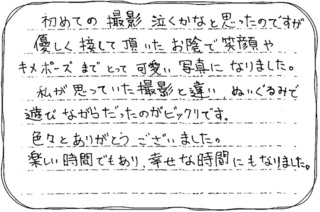 初めての 撮影 泣くかなと思ったのですが
優しく 接して 頂いた お陰で 笑顔や
キメポーズ まで とって 可愛い 写真に なりました。
私が 思っていた 撮影と 違い ぬいぐるみで
遊び ながらだったのが ビックリです。
色々と ありがとう ございました。
楽しい 時間でもあり、幸せな 時間 にもなりました。